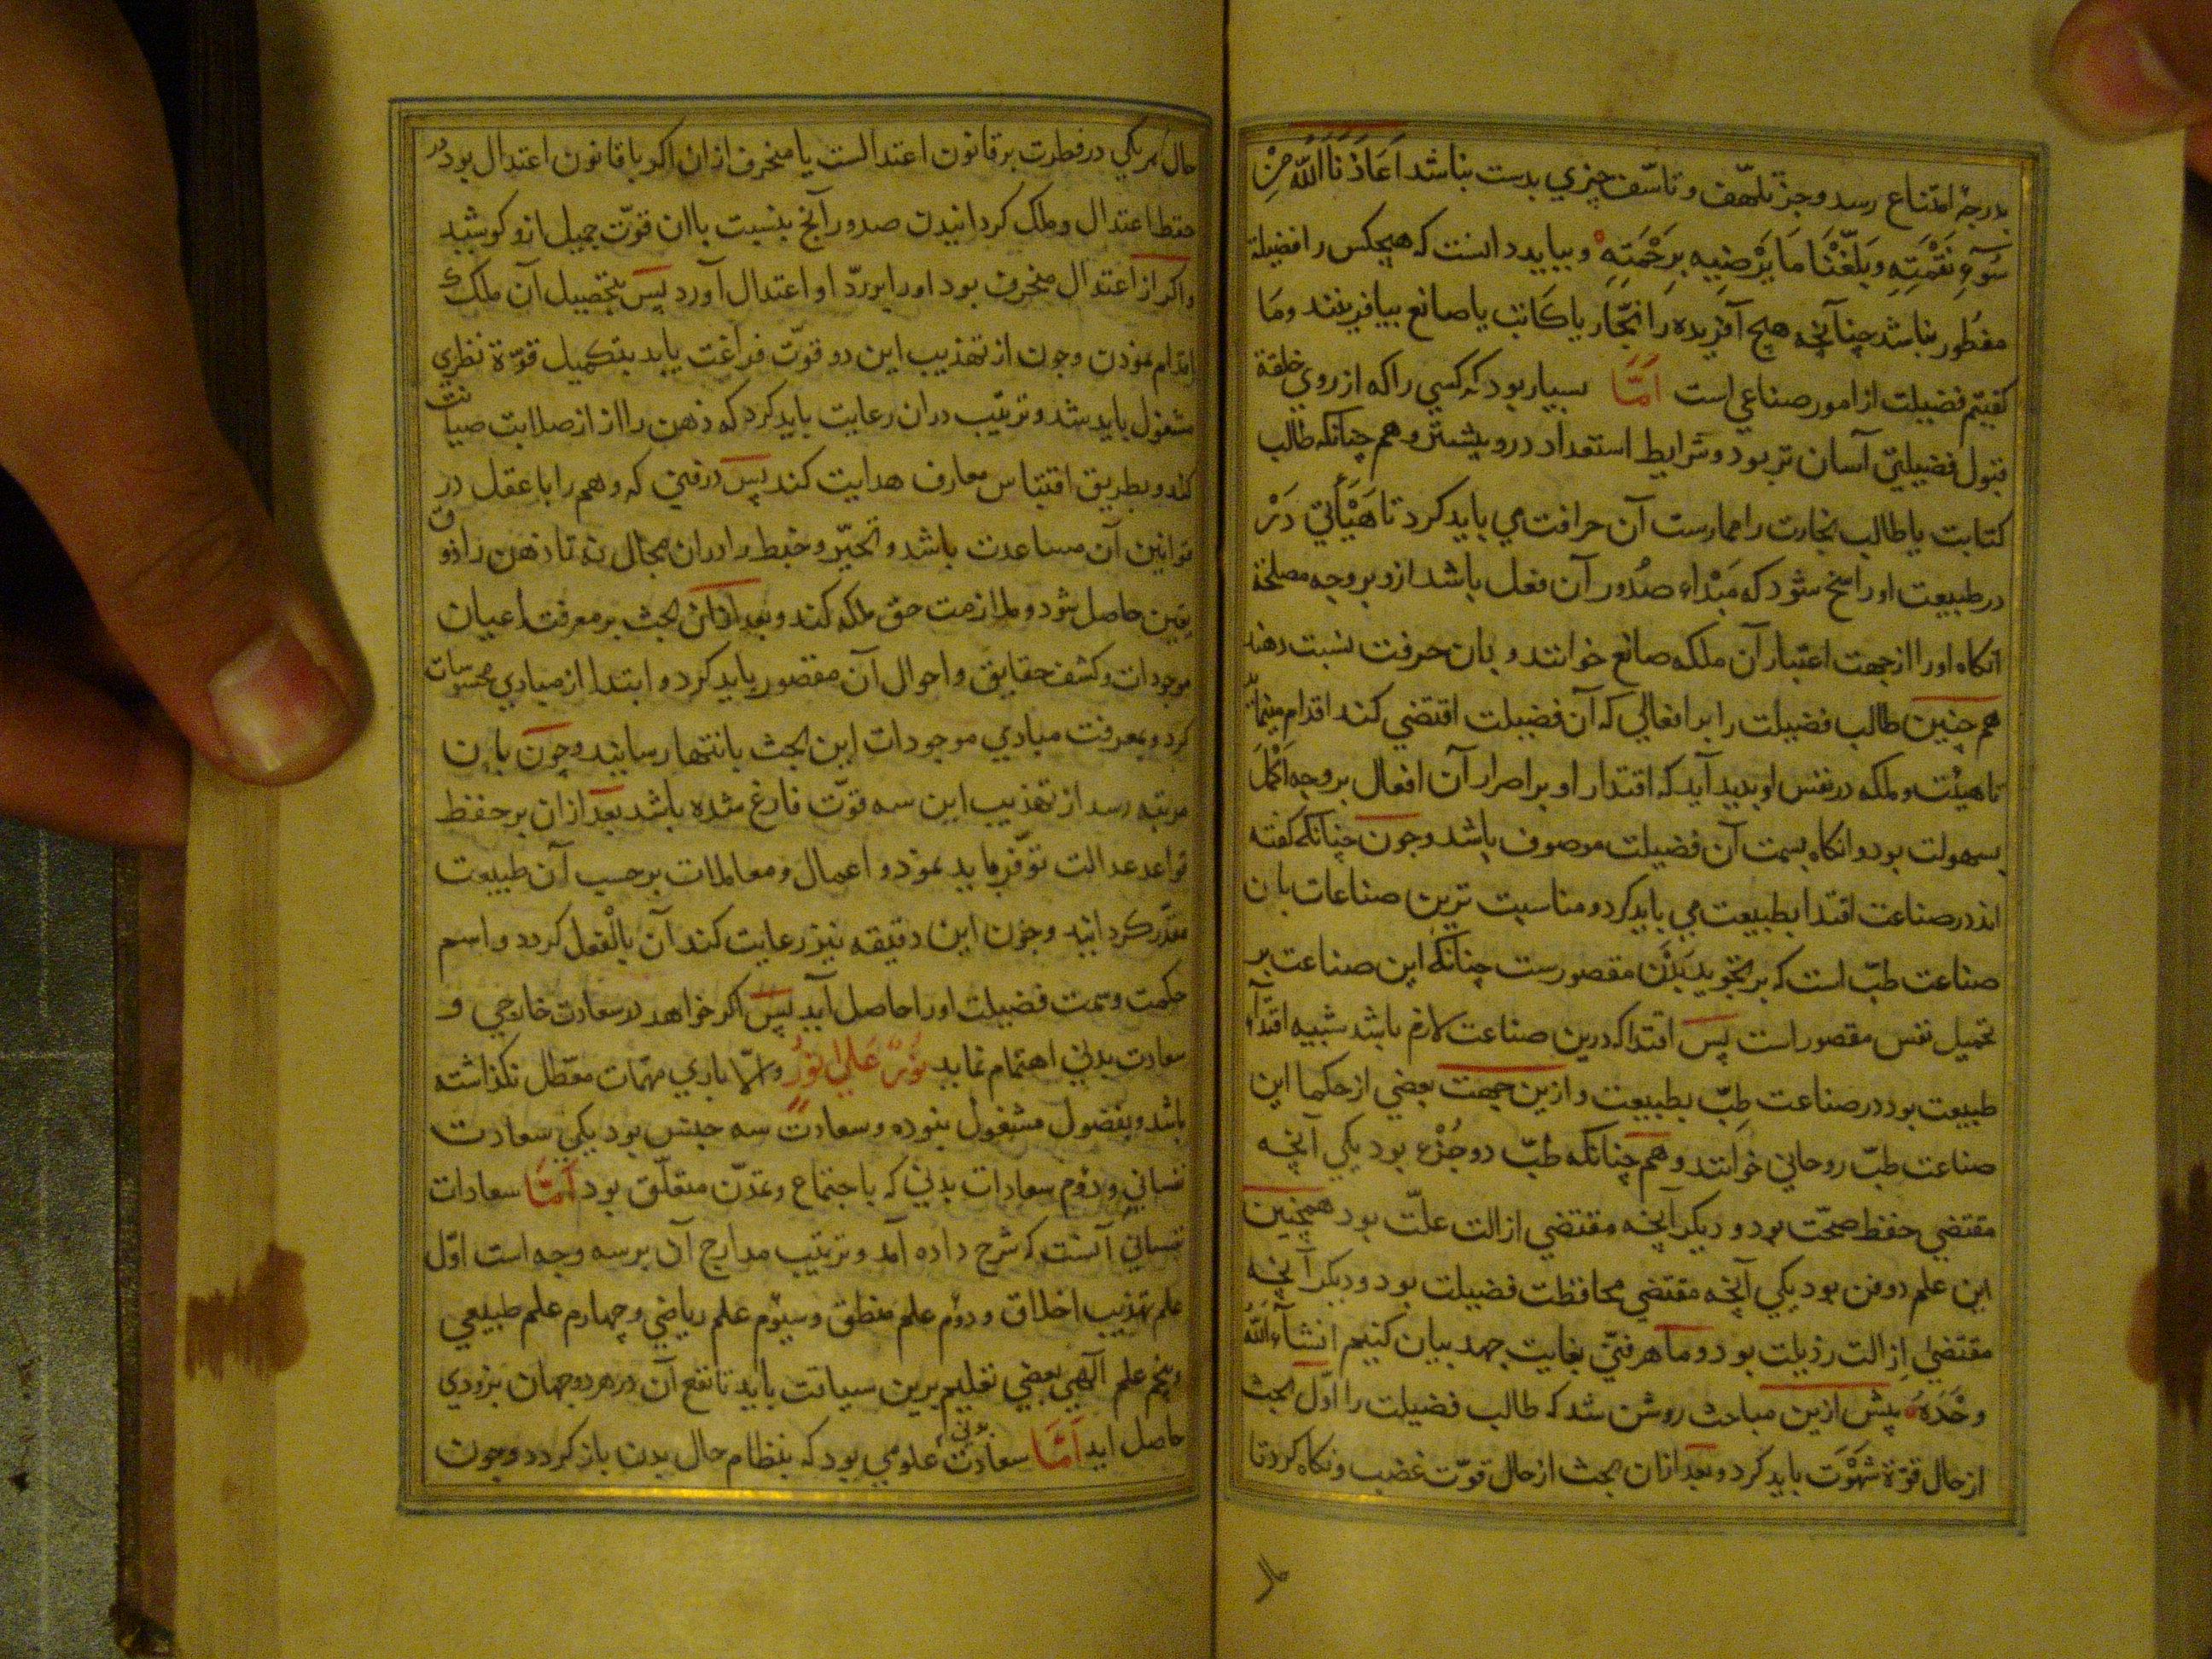 بدرجهٔ امتناع رسد و جز تلهّف و تاسّف چیزی بدست نباشد اَعَاذَنَا اللّٰه مِنْ
سُوءِ نَقْمَتِهِ وَبَلَّغَنَا مَا یَرْضِیهِ بِرَحْمَتِهِ و بباید دانست که هیچکس را فضیلة
مفطور نباشد چنانچه هیچ آفریده را نجّار یا کاتب یا صانع بیافرینند و ما
کفتیم فضیلت از امور صناعی است اَمَّا بسیار بود که کسی را که از روی خلقة
قبول فضیلتی آسان تر بود و شرایط استعداد درو بیشتر و هم چنانکه طالب
کتابت یا طالب نجارت را ممارست آن حرافت می باید کرد تا هَیْأتی دَرْ
در طبیعت او راسخ شود که مَبْداء صُدُور آن فعل باشد ازو بر وجه مصلحة
انکاه او را از جهت اعتبار آن ملکه صانع خوانند و بان حرفت نسبت دهند
هم چنین طالب فضیلت را بر افعالی که آن فضیلت اقتضی کند اقدام می‌نماید
تا هیئت و ملکه در نفس او بدید آید که اقتدار او بر اصرار آن افعال بر وجه اکمل
بسهولت بود و انکاه بسمت آن فضیلت موصوف باشد و جون چنانکه کفته
اند در صناعت اقتدا بطبیعت می باید کرد و مناسبت ترین صناعات بان
صناعت طبّ است که بر تجوید بَدَن مقصورست چنانکه این صناعت بر
تحمیل نفس مقصور است پس اقتدا که درین صناعت لازم باشد شبیه اقتداء
طبیعت بود در صناعت طِبّ بطبیعت و ازین جهت بعضی از حکما این
صناعت طبّ روحانی خوانند و هم چنانکه طبّ دو جُزْء بود یکی آنچه
مقتضی حفظ صحّت بود و دیکر آنچه مقتضی ازالت علّت بود همچنین
این علم دو فن بود یکی آنچه مقتضی محافظت فضیلت بود و دیکر آنچه
مقتضی ازالت رذیلت بود و ما هر فنّی بغایت جهد بیان کنیم انشآء اللّٰه
وَحْدَهُ پیش ازین مباحث روشن شد که طالب فضیلت را اوّل بحث
از حال قوّة شَهْوَت باید کرد و بعد ازان بحث از حال قوّت غضب و نکاه کرد تا
حال
حال هر یکی در فطرت بر قانون اعتدالست یا منحرف ازان اکر با قانون اعتدال بود در
حفظ اعتدال و ملک کردانیدن صدور آنچ بنسبت با ان قوّت جمیل ازو کوشید
و اکر از اعتدال منحرف بود اورا برّد او اعتدال آورد پس بتحصیل آن ملک
اقدام نمودن و جون از تهذیب این دو قوّت فراغت یابد بتکمیل قوّة نظری
مشغول باید شد و ترتیب دران رعایت باید کرد که ذهن را از صلابت صیانت
کند و بطریق اقتناس معارف هدایت کند پس در فنی که وهم را با عقل در
قوانین آن مساعدت باشد و تحیّر و خبط را دران مجال نه تا ذهن را ذوق
یقین حاصل شود و ملازمت حق ملکه کند و بعد ازان بحث بر معرفت اعیان
موجودات و کشف حقایق و احوال آن مقصور باید کرد و ابتدا از مبادی محسوسات
کرد و بمعرفت مبادی موجودات این بحث بانتها رسانید و چون باین
مرتبه رسد از تهذیب این سه قوّت فارغ شده باشد بعد ازان بر حفظ
قواعد عدالت توفّر باید نمود و اعمال و معاملات برحسب آن طبیعت
مقدّر کردانید و جون این دقیقه نیز رعایت کند آن بالفعل کردد و اسم
حکمت و سمت فضیلت اورا حاصل آید پس اکر خواهد در سعادت خارجی و
سعادت بدنی اهتمام نماید نُورٌ عَلَی نُورٌ و الّا باری مهمّات معطّل نکذاشته
باشد و بفضول مشغول نبوده و سعادت سه جنس بود یکی سعادت
نفسانی و دوم سعادات بدنی که باجتماع و تمدّن متعلّق بود اَمَّا سعادات
نفسانی آنست که شرح داده آمد و ترتیب مدارج آن بر سه وجه است اوّل
علم تهذیب اخلاق و دوّم علم منطق و سیوّم علم ریاضی و چهارم علم طبیعی
و پنجم علم آلهی بعضی تعلیم برین سیاقت باید تا نفع آن در هر دو جهان بزودی
حاصل اید اَمَّا سعادت بدنی علومی بود که بنظام حال بدن باز کردد و جون